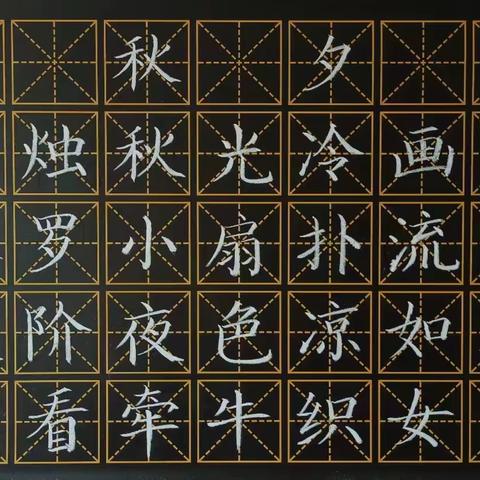 秋夕
烛秋光冷画
罗小扇扑流
阶夜色凉如
看牵牛织女